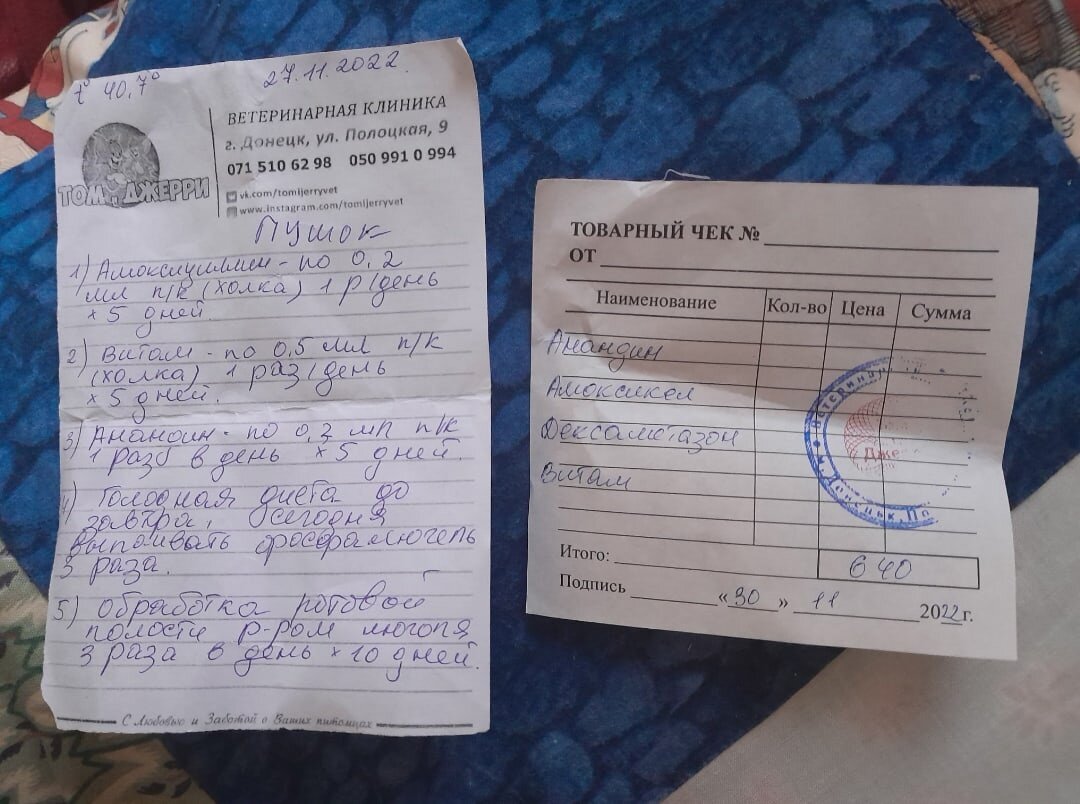 t° 40,7° 27.11.2022.
ТОМ и ДЖЕРРИ
ВЕТЕРИНАРНАЯ КЛИНИКА
г. Донецк, ул. Полоцкая, 9
071 510 62 98 050 991 0 994
vk.com/tomijerryvet
www.instagram.com/tomijerryvet
Пушок
1) Амоксициллин - по 0,2
мл п/к (холка) 1 р/день
× 5 дней.
2) Витам - по 0,5 мл п/к
(холка) 1 раз/день
× 5 дней.
3) Анандин - по 0,3 мл п/к
1 раз в день × 5 дней.
4) Голодная диета до
завтра, сегодня
выпаивать фосфалюгель
3 раза.
5) Обработка ротовой
полости р-ром люголя
3 раза в день × 10 дней.
С Любовью и Заботой о Ваших питомцах
ТОВАРНЫЙ ЧЕК №
ОТ
Наименование Кол-во Цена Сумма
Анандин
Амоксикел
Дексаметазон
Витам
Ветеринар
Дже
Донецк, По
Итого: 640
Подпись «30» 11 2022 г.